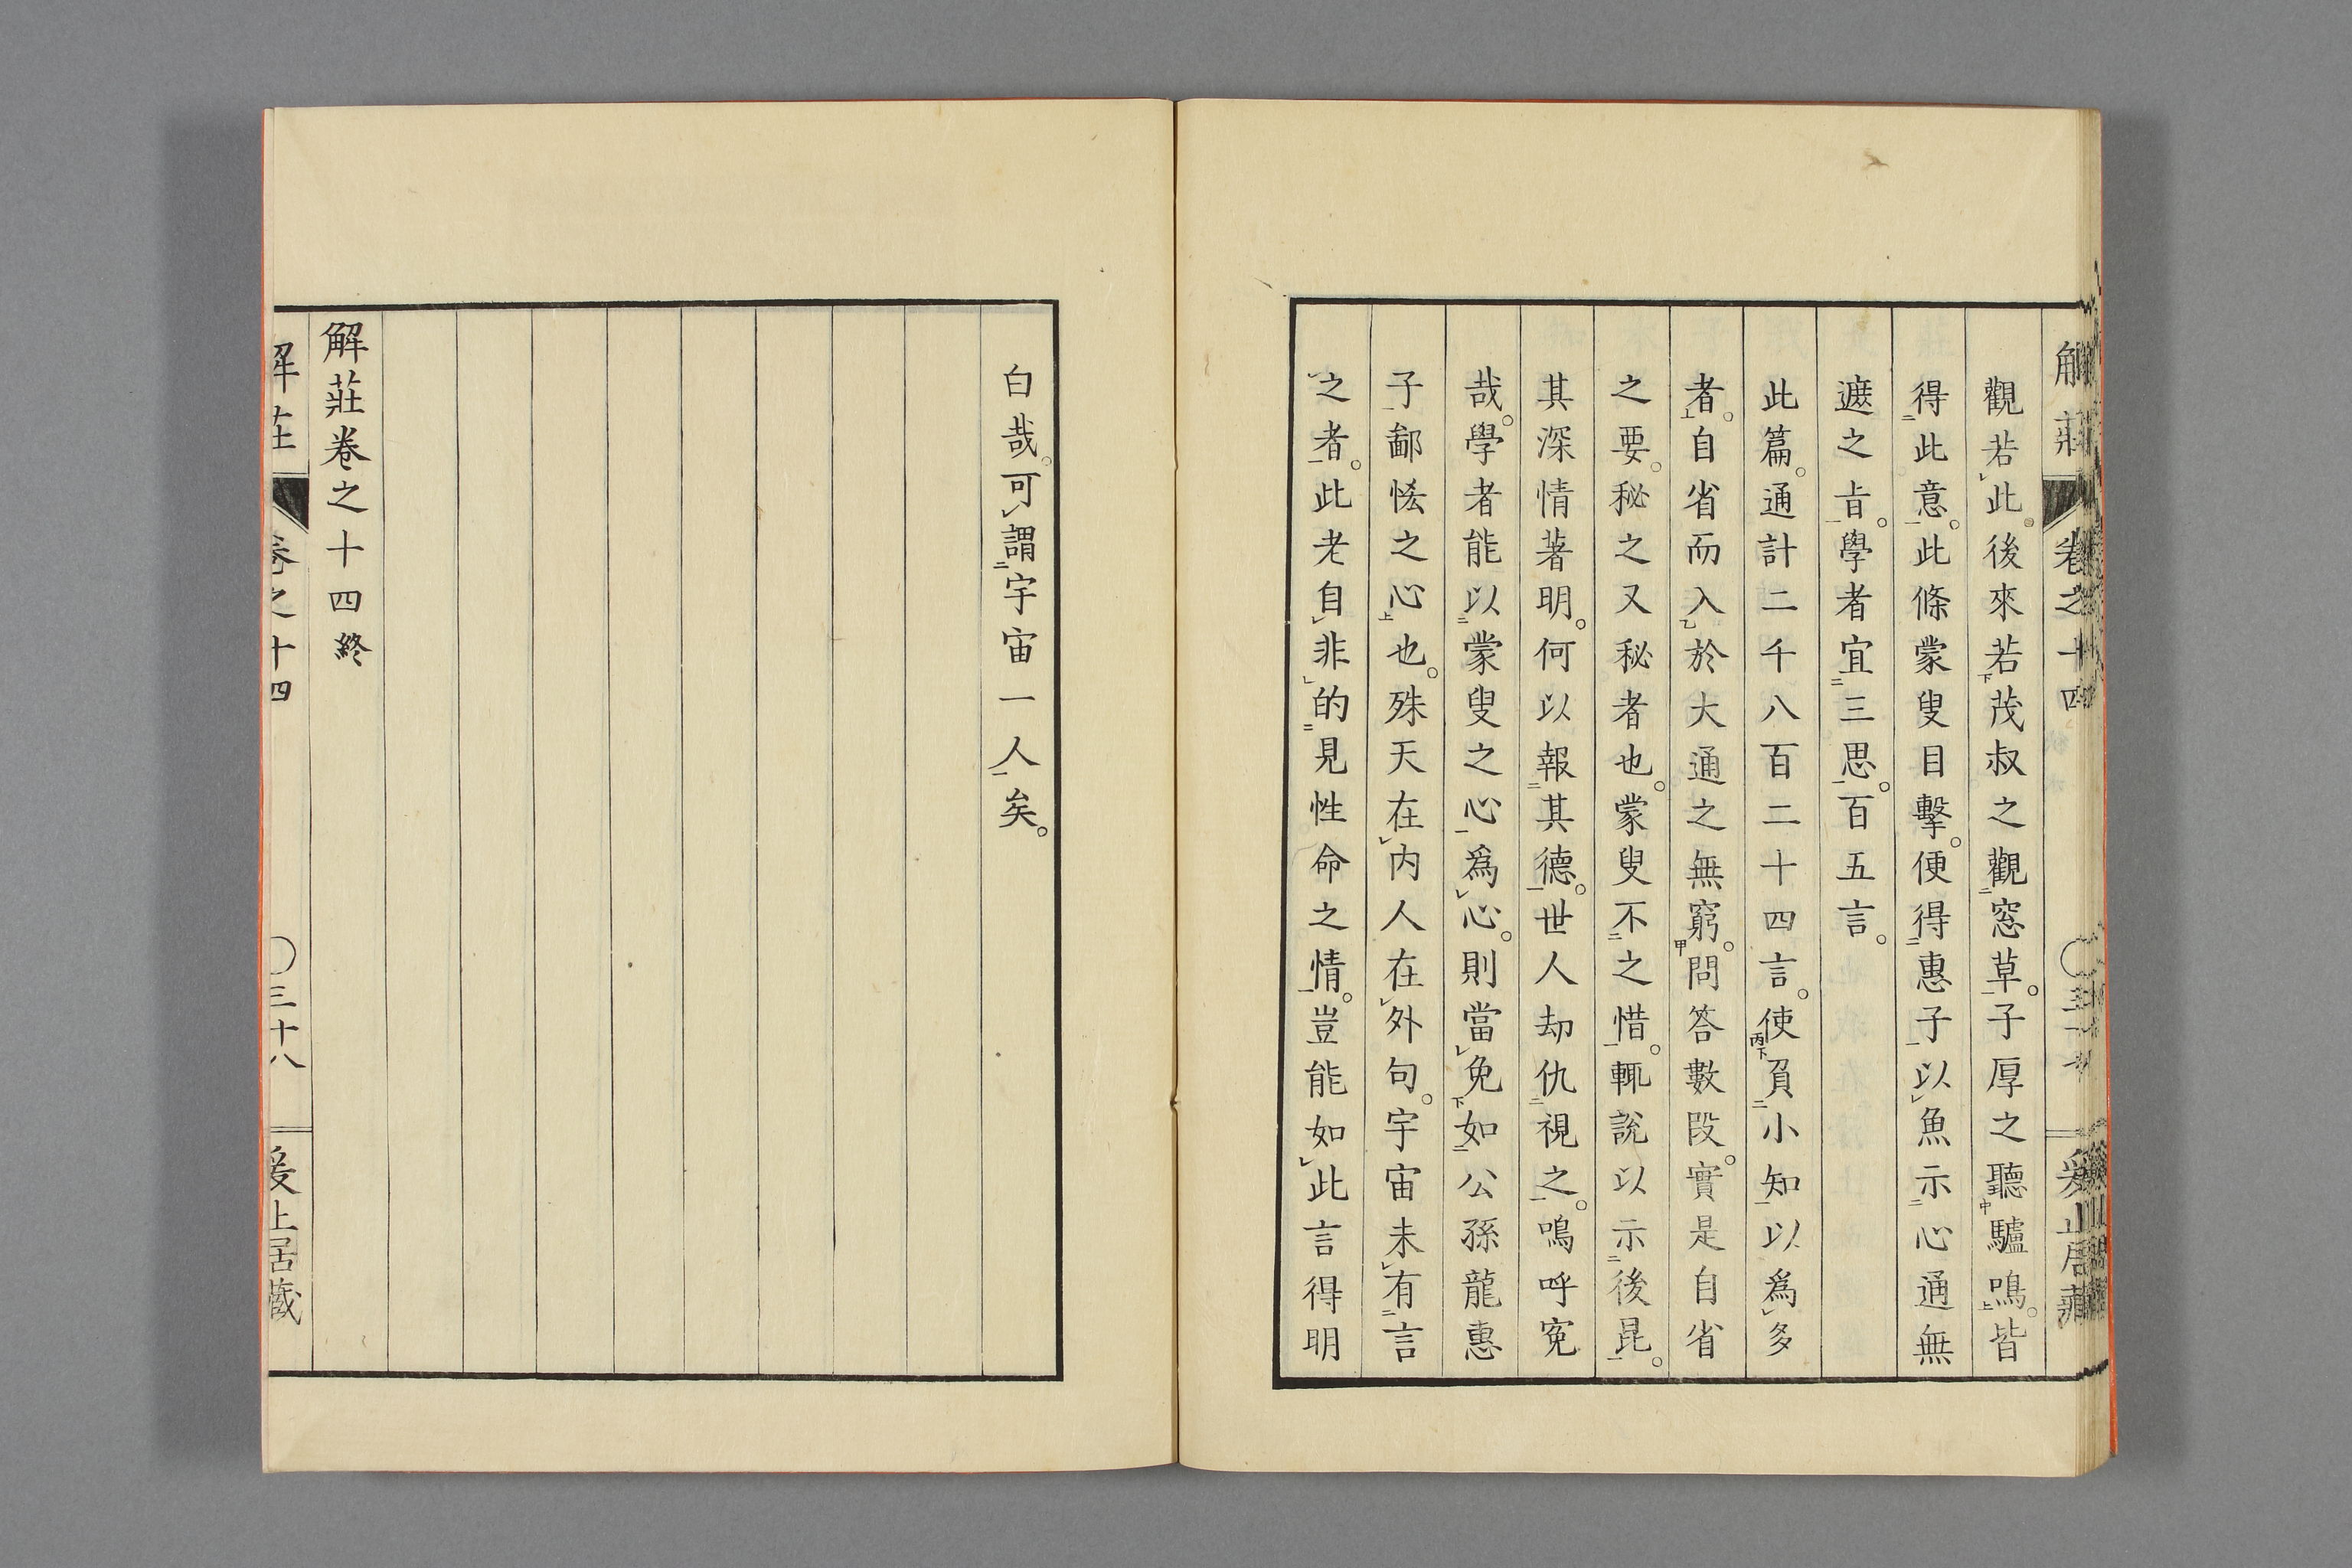 解莊 卷之十四
觀若此。後來若茂叔之觀窓草。子厚之聽驢鳴。皆
得此意。此條蒙叟目擊。便得惠子以魚示心通無
遮之㫖。學者宜三思。百五言。
此篇。通計二千八百二十四言。使負小知以爲多
者。自省而入於大通之無窮。問答數段。實是自省
之要。秘之又秘者也。蒙叟不之惜。輒說以示後昆。
其深情著明。何以報其德。世人却仇視之。嗚呼寃
哉。學者能以蒙叟之心爲心。則當免如公孫龍惠
子鄙恡之心也。殊天在内人在外句。宇宙未有言
之者。此老自非的見性命之情。豈能如此言得明
白哉。可謂宇宙一人矣。
解莊卷之十四終
解莊 卷之十四 〇三十八 爰止居藏